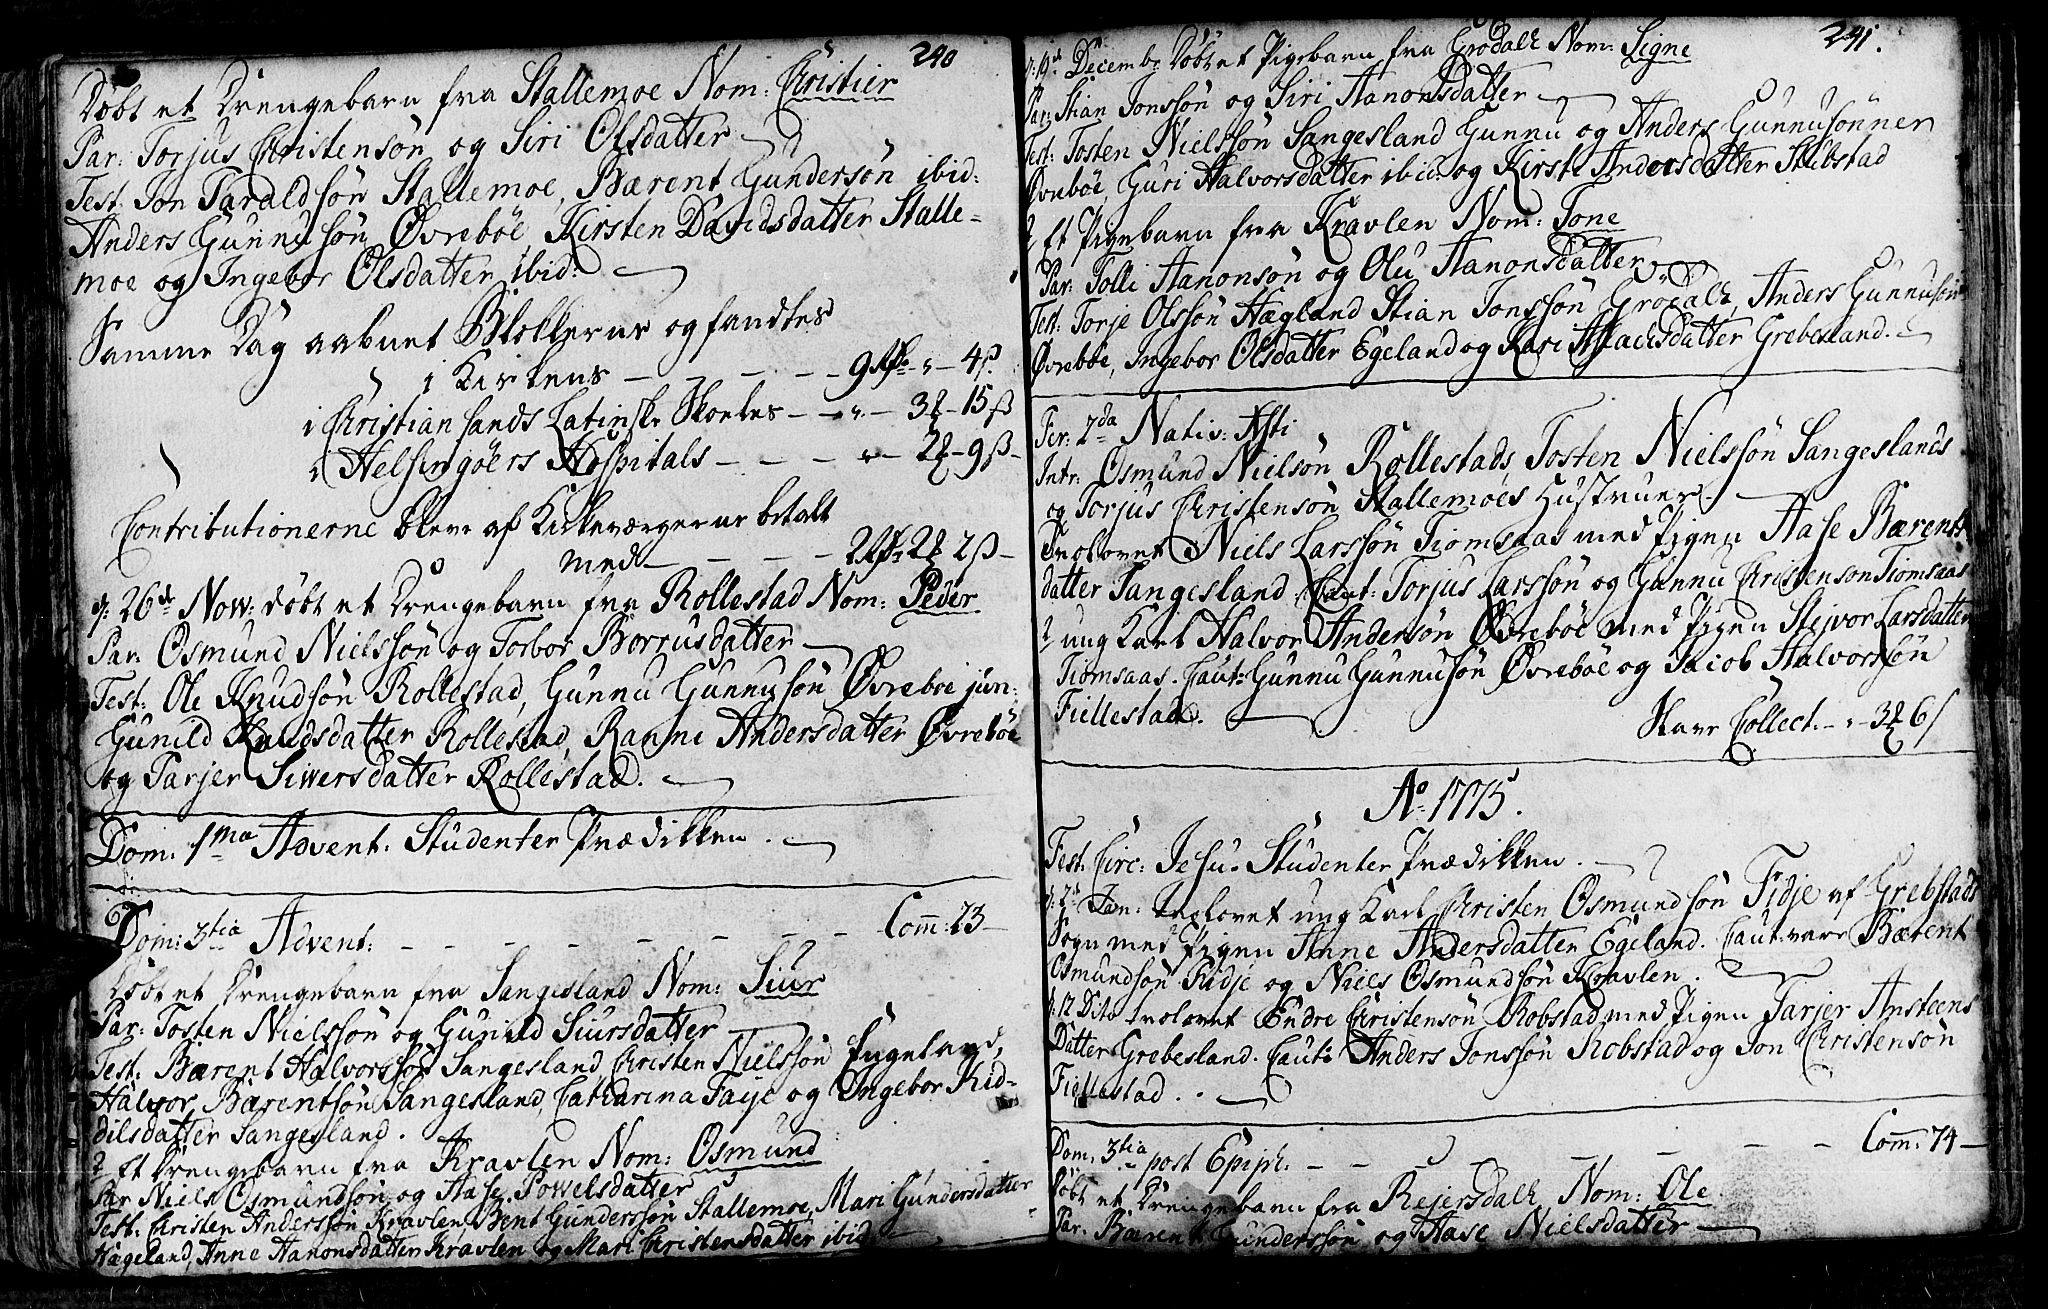 240
Døbt et Drengebarn fra Stallemoe Nom: Christier
Par: Torjus Christensøn og Siri Olsdatter
Test: Jon Taraldsøn Stallemoe, Bærent Gundersøn ibid:
Anders Gunnusøn Øvrebøe, Kirsten Davidsdatter Stalle-
moe og Ingebor Olsdatter ibid:
Samme Dag aabnet Blokkerne og fandtes
i Kirkens - - - - 9 - 4ß
i Christiansands Latinske Skoeles - - 3 - 15ß
i Helsingøers Hospitals - - - 2 - 9ß
Contributionerne blev af Kirkeværgerne betalt
med - - - 2 2 2ß
d: 26de Nov: døbt et Drengebarn fra Rollestad Nom: Peder
Par: Osmund Nielssøn og Torbor Borrusdatter
Test: Ole Knudsøn Rollestad, Gunnu Gunnusøn Øvrebøe jun:
Gunild Knudsdatter Rollestad, Ranni Andersdatter Øvrebøe
og Tarjer Siwersdatter Rollestad.
Dom: 1ma Advent: Studenter Prædikken.
Dom: 3tia Advent: - - - - - - - Com̄: 73
Døbt et Drengebarn fra Sangesland Nom: Siur
Par: Tosten Nielssøn og Gunild Siursdatter
Test: Bærent Halvorssøn Sangesland, Christen Nielssøn Engeland,
Halvor Bærentsøn Sangesland, Catharina Faije og Ingebor Kid-
dilsdatter Sangesland.
2 Et Drengebarn fra Kravlen Nom: Osmund
Par Niels Osmundsøn og Aase Powelsdatter
Test: Christen Anderssøn Kravlen, Bent Gunderssøn Stallemoe, Mari Gundersdatter
Hægeland, Anne Aanonsdatter Kravlen og Mari Christensdatter ibid:
241.
d: 19de Decembr Døbt et Pigebarn fra Grodale Nom: Signe
Par: Stian Jonssøn og Siri Aanonsdatter
Test: Tosten Nielssøn Sangesland Gunnu og Anders Gunnusønner
Øvrebøe, Guri Halvorsdatter ibid: og Kirsti Andersdatter Stubstad
2 Et Pigebarn fra Kravlen Nom: Tone
Par: Tolli Aanonsøn og Olu Aanonsdatter
Test: Torje Olssøn Hægland Stian Jonssøn Grødale, Anders Gunnusøn
Øvrebøe, Ingebor Olsdatter Egeland og Kari Aslachsdatter Grebesland.
Fer: 2da Nativ: Xsti
Intr: Osmund Nielsøn Rollestads, Tosten Nielssøn Sangeslands
og Torjus Christensøn Stallemoes Hustruer.
Trolovet Niels Larssøn Tiomsaas med Pigen Aase Bærents-
datter Sangesland. Caut: Torjus Larssøn og Gunnu Christenson Tiomsaas
2 ung Karl Halvor Andersøn Øvrebøe med Pigen Stejvor Larsdatter
Tiomsaas. Caut: Gunnu Gunnusøn Øvrebøe og Jacob Halvorssøn
Fiellestad.
Tavr Collect. - 3 6ß
Ao 1775.
Fest: Circ: Jesu. Studenter Prædikken.
d: 2d Jan: trolovet ung Karl Christen Osmundsøn Fidje af Grebstads
Sogn med Pigen Anne Andersdatter Egeland. Caut: vare Bærent
Osmundsøn Fidje og Niels Osmundsøn Kravlen.
d: 12 Dito trolovet Endre Christensøn Robstad med Pigen Tarjer Ansteens
Datter Grebesland. Caut: Anders Jonssøn Robstad og Jon Christensøn
Fiellestad.
Dom: 3tia post Epiph: - - - - - - Com̄: 74
Døbt et Drengebarn fra Rejersdale Nom: Ole
Par: Bærent Gunderssøn og Aase Nielsdatter